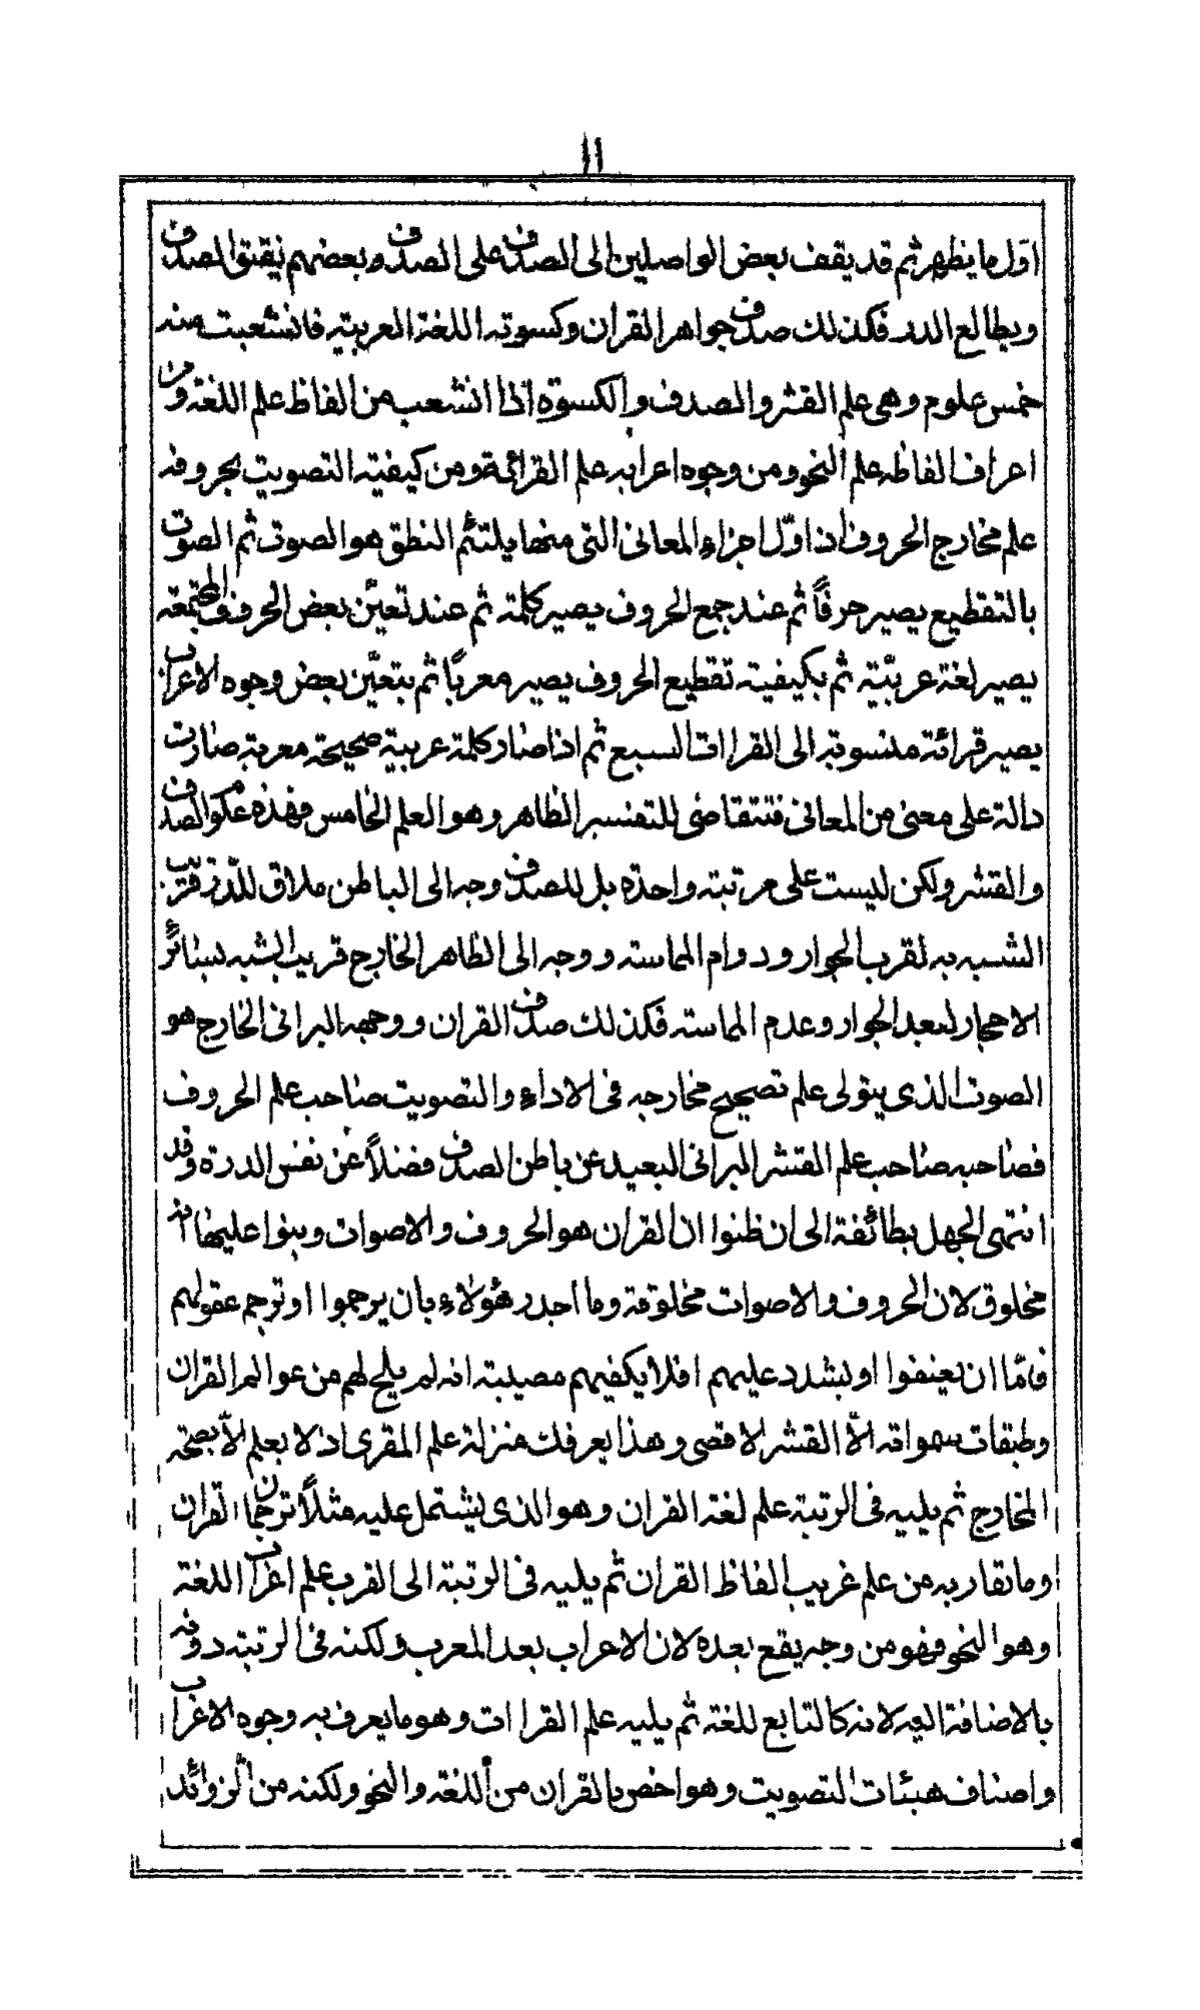 ١١
اوّل ما يظهر ثم قد يقف بعض الواصلين الى الصدف على الصدف وبعضهم يفتق الصدف
ويطالع الدر فكذلك صدف جواهر القران وكسوته اللغة العربية فانشعبت منه
خمس علوم وهى علم القشر والصدف والكسوة اذا انشعب من الفاظ علم اللغة ومن
اعراف الفاظه علم النحو ومن وجوه اعرابه علم القرائة ومن كيفية التصويت بحروفه
علم مخارج الحروف اذ اوّل اجزاء المعانى التى منها يلتئم النطق هو الصوت ثم الصوت
بالتقطيع يصير حرفًا ثم عند جمع الحروف يصير كلمة ثم عند تعيّن بعض الحروف المجتمعة
يصير لغة عربيّة ثم بكيفية تقطيع الحروف يصير معربًا ثم بتعيّن بعض وجوه الاعراب
يصير قرائة منسوبة الى القراات السبع ثم اذا صار كلمة عربية صحيحة معربة صارت
دالة على معنى من المعانى فتتقاضى للتفسير الظاهر وهو العلم الخامس فهذه علوم الصدف
والقشر ولكن ليست على مرتبة واحدة بل للصدف وجه الى الباطن ملاق للدّر قريب
الشبه به لقرب الجوار ودوام المماسة ووجه الى الظاهر الخارج قريب الشبه بسائر
الاحجار لبعد الجوار وعدم المماسة فكذلك صدف القران ووجهه البرانى الخارج هو
الصوت الذى يتولى علم تصحيح مخارجه فى الاداء والتصويت صاحب علم الحروف
فصاحبه صاحب علم القشر البرانى البعيد عن باطن الصدف فضلاً عن نفس الدرة وقد
انتهى الجهل بطائفة الى ان ظنوا ان القران هو الحروف والاصوات وبنوا عليها انه
مخلوق لان الحروف والاصوات مخلوقة وما اجدر هؤلاء بان يرجموا او ترجم عقولهم
فامّا ان يعنفوا او يشدد عليهم افلا يكفيهم مصيبة انه لم يلح لهم من عوالم القران
وطبقات سمواته الاّ القشر الاقصى وهذا يعرفك منزلة علم المقرى اذ لا يعلم الاّ بصحة
المخارج ثم يليه فى الرتبة علم لغة القران وهو الذى يشتمل عليه مثلاً ترجمان القران
وما يقاربه من علم غريب الفاظ القران ثم يليه فى الرتبة الى القرب علم اعراب اللغة
وهو النحو فهو من وجه يقع بعده لان الاعراب بعد المعرب ولكنه فى الرتبة دونه
بالاضافة اليه لانه كالتابع للغة ثم يليه علم القراات وهو ما يعرف به وجوه الاعراب
واصناف هيئات التصويت وهو اخص بالقران من اللغة والنحو ولكنه من الزوائد